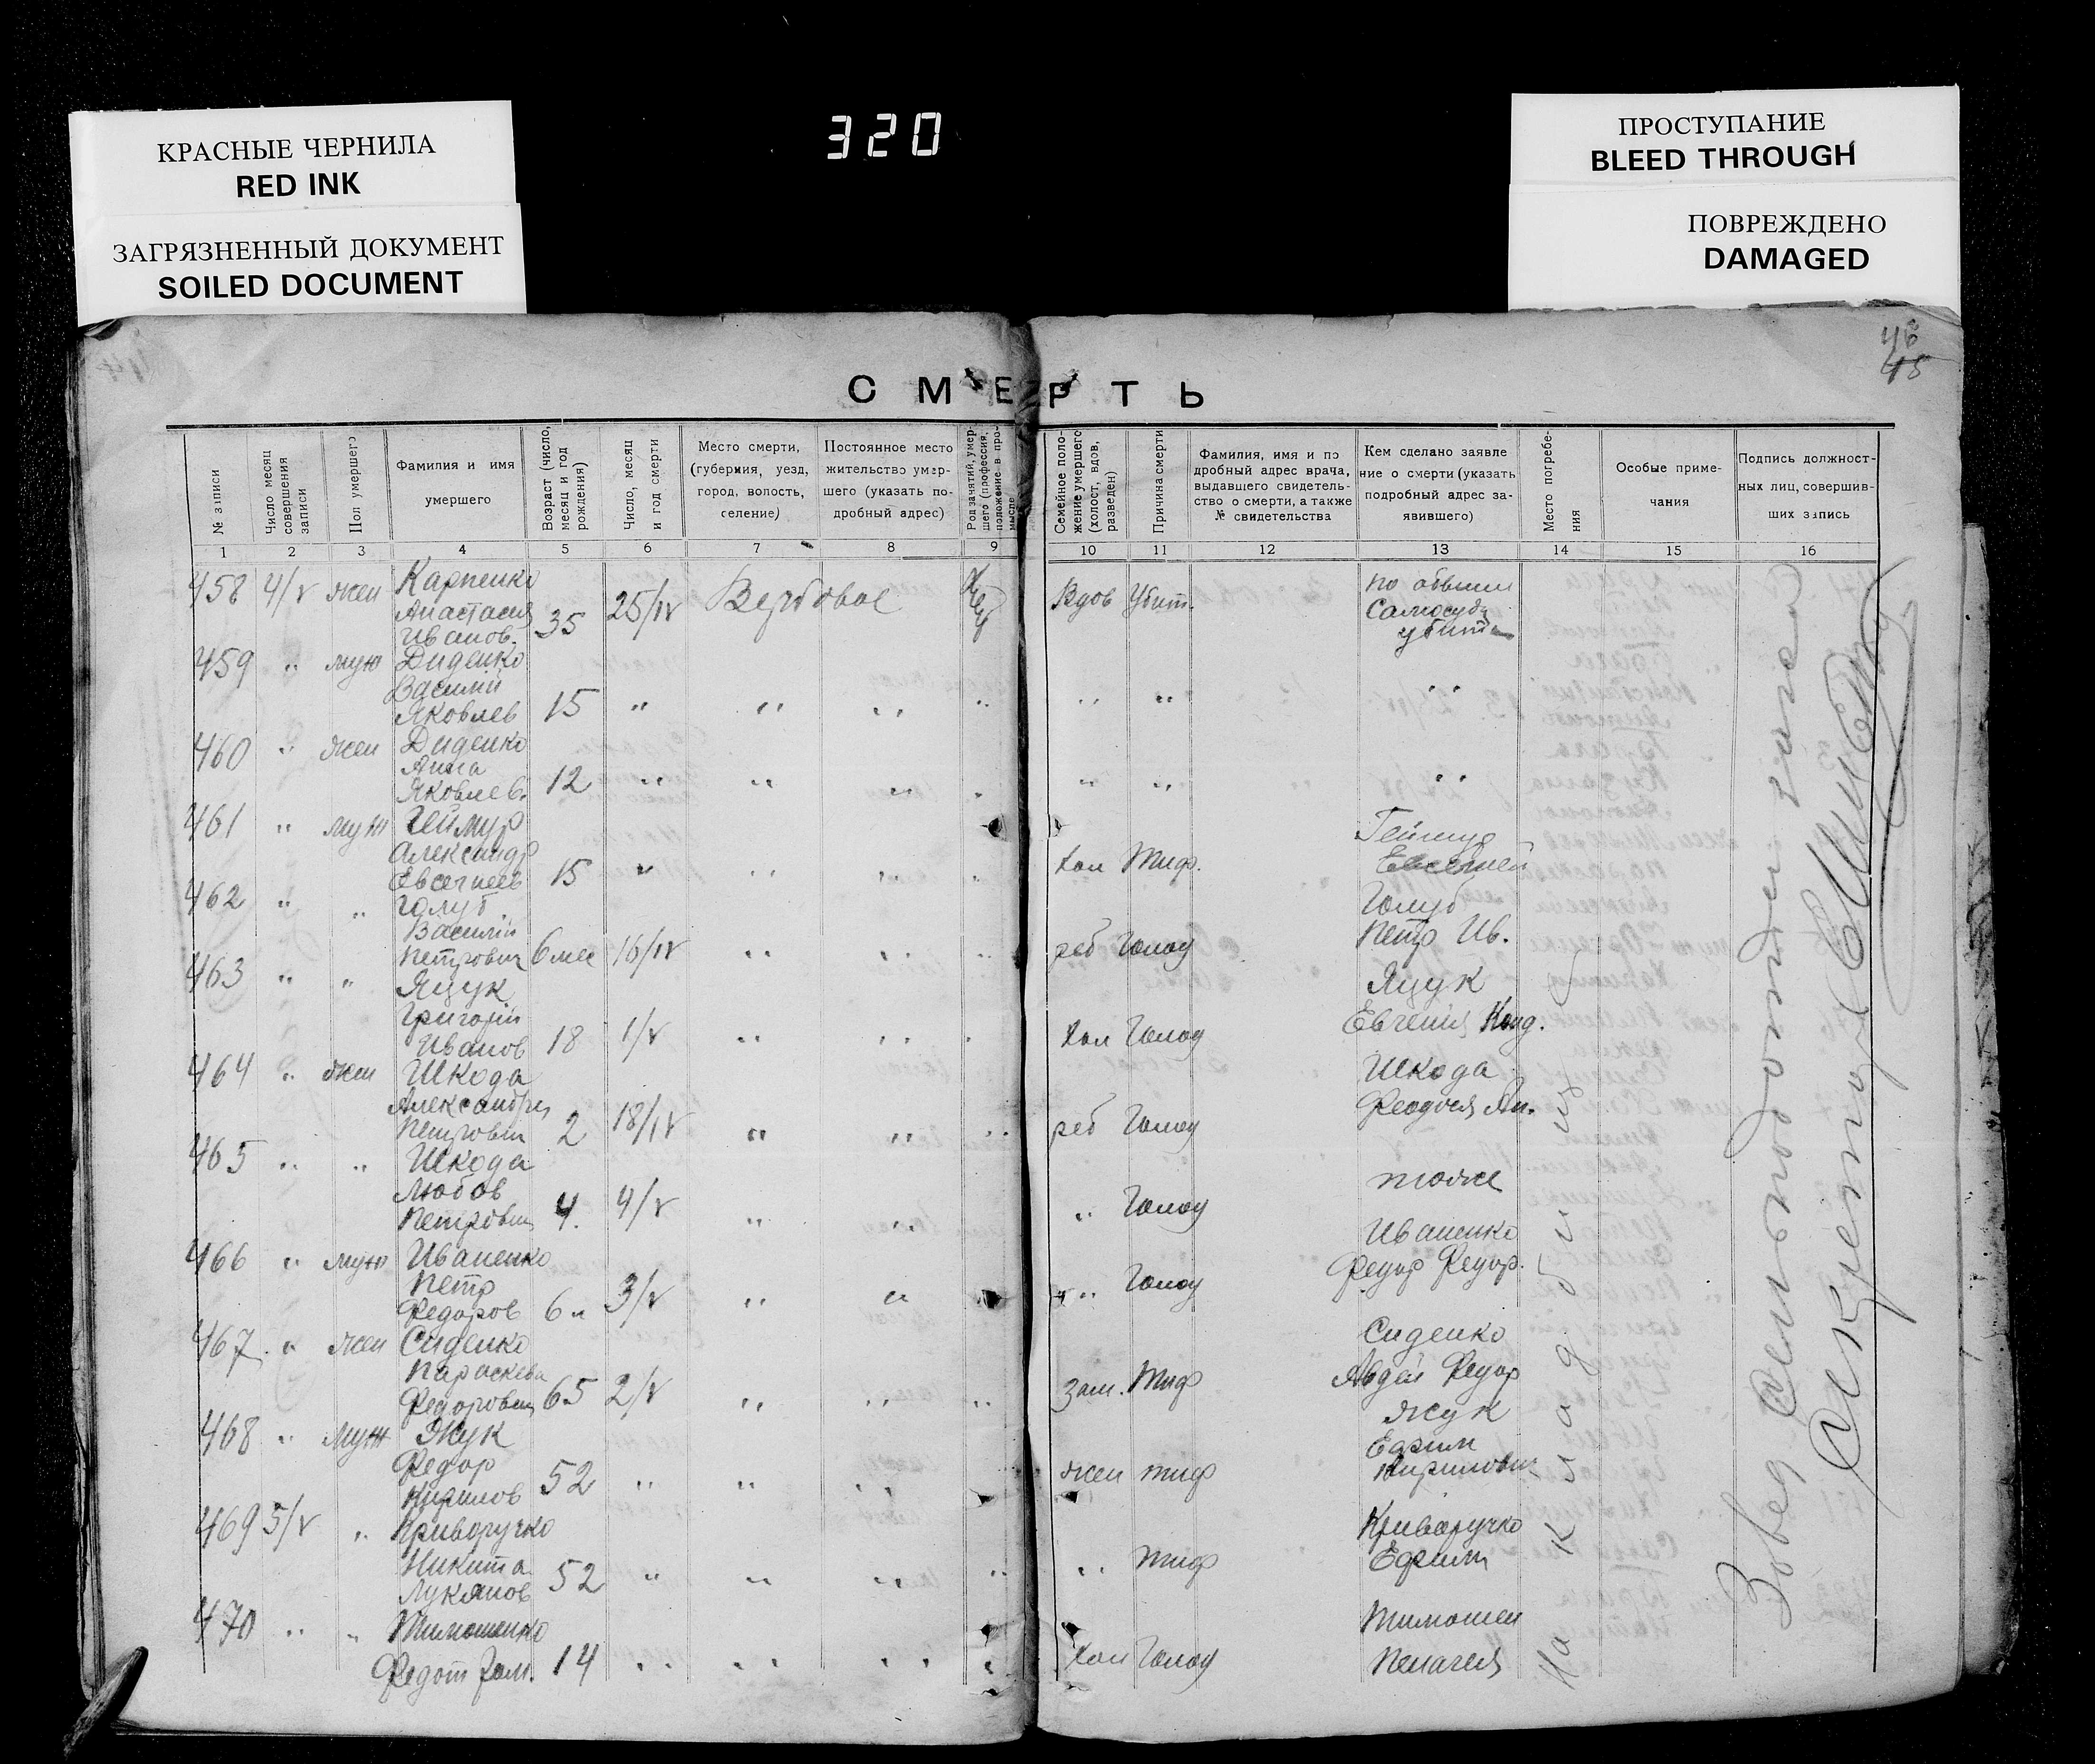 КРАСНЫЕ ЧЕРНИЛА
RED INK
ЗАГРЯЗНЕННЫЙ ДОКУМЕНТ
SOILED DOCUMENT
320
ПРОСТУПАНИЕ
BLEED THROUGH
ПОВРЕЖДЕНО
DAMAGED
46
45
СМЕРТЬ
№ записи
Число месяц совершения записи
Пол умершего
Фамилия и имя умершего
Возраст (число, месяц и год рождения)
Число, месяц и год смерти
Место смерти, (губерния, уезд, город, волость, селение)
Постоянное место жительство умершего (указать подробный адрес)
Род занятий, умершего (профессия, положение в промысле
Семейное положение умершего (холост, вдов, разведен)
Причина смерти
Фамилия, имя и подробный адрес врача, выдавшего свидетельство о смерти, а также № свидетельства
Кем сделано заявление о смерти (указать подробный адрес заявившего)
Место погребения
Особые примечания
Подпись должностных лиц, совершивших запись
1 2 3 4 5 6 7 8 9 10 11 12 13 14 15 16
458 4/V жен Карпенко Анастасия Иванов. 35 25/IV Вербовое Вдов Убит. Самосуда убита
459 " муж Диденко Василий Яковлев 15 " " " " " " "
460 " жен Диденко Анна Яковлев. 12 " " " " " " "
461 " муж Геймур Александр Евсегнеев 15 " " " " Хол Тиф. Геймур
462 " " Голуб Василий Петрович 6 мес 16/IV " " " реб Голод Голуб Петр Ив.
463 " " Яцук Григорий Иванов 18 1/V " " " Хол Голод Яцук Евгения Конд.
464 " жен Шкода Александра Петровна 2 18/IV " " " реб Голод Шкода Феодосия Ан.
465 " " Шкода Любов Петровна 4. 4/V " " " Голод тоже
466 " муж Иваненко Петр Федоров 6 " 3/V " " " Голод Иваненко Федор Федор.
467 " жен Сиденко Параскева Федоровна 65 2/V " " " Зам. Тиф Сиденко Авдей Федор
468 " муж Жук Федор Кирилов 52 " " " жен тиф Жук Ефрим Кирилович
469 5/V " Криворучко Никита Лукянов 52 " " " " " Тиф Криворучко Ефрим
470 " " Тимошенко Федот 14 " " " " Хол Голод Тимошен Пелагея
На кладбищ
Секретарь